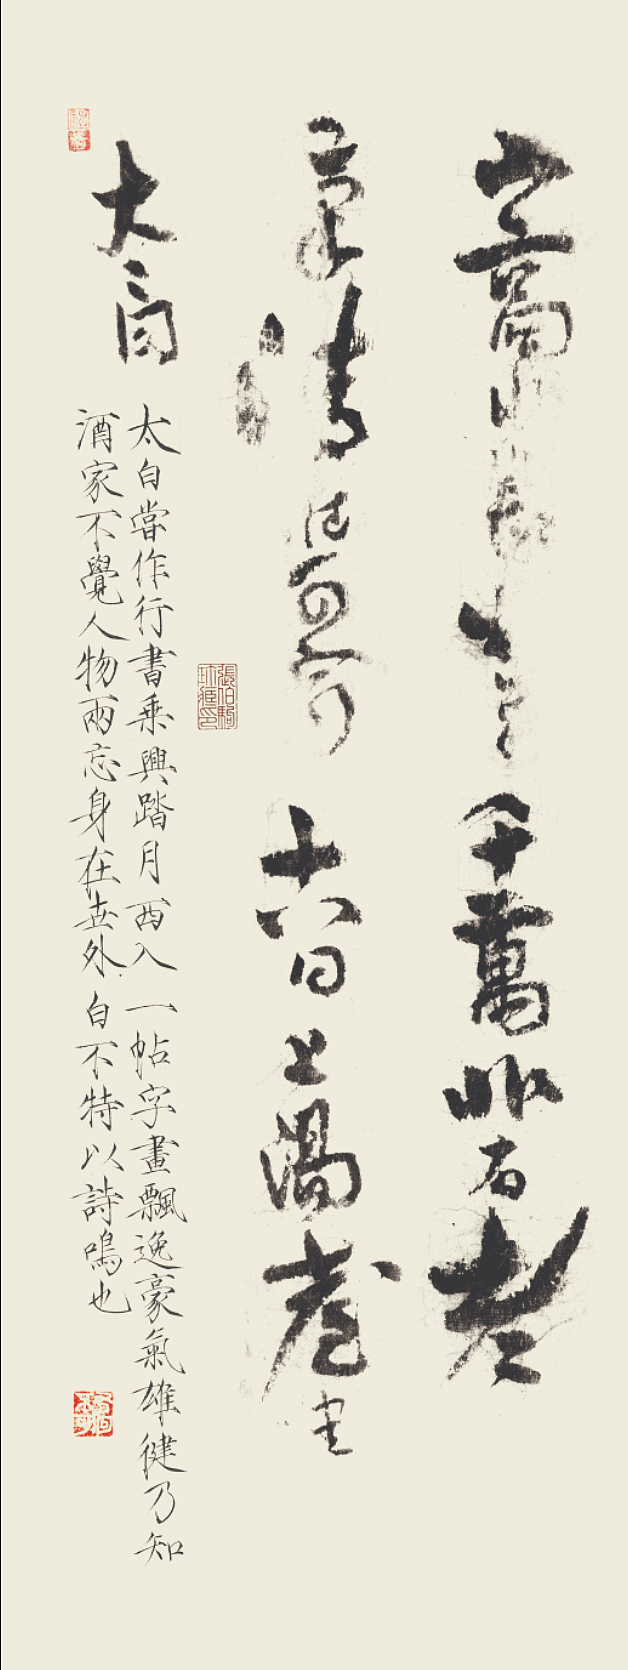 山高水長物象
千萬非有老
筆清壯何窮
十八日上陽臺書
太白
太白嘗作行書乘興踏月西入一帖字畫飄逸豪氣雄健乃知
酒家不覺人物兩忘身在世外自不特以詩鳴也
張伯駒